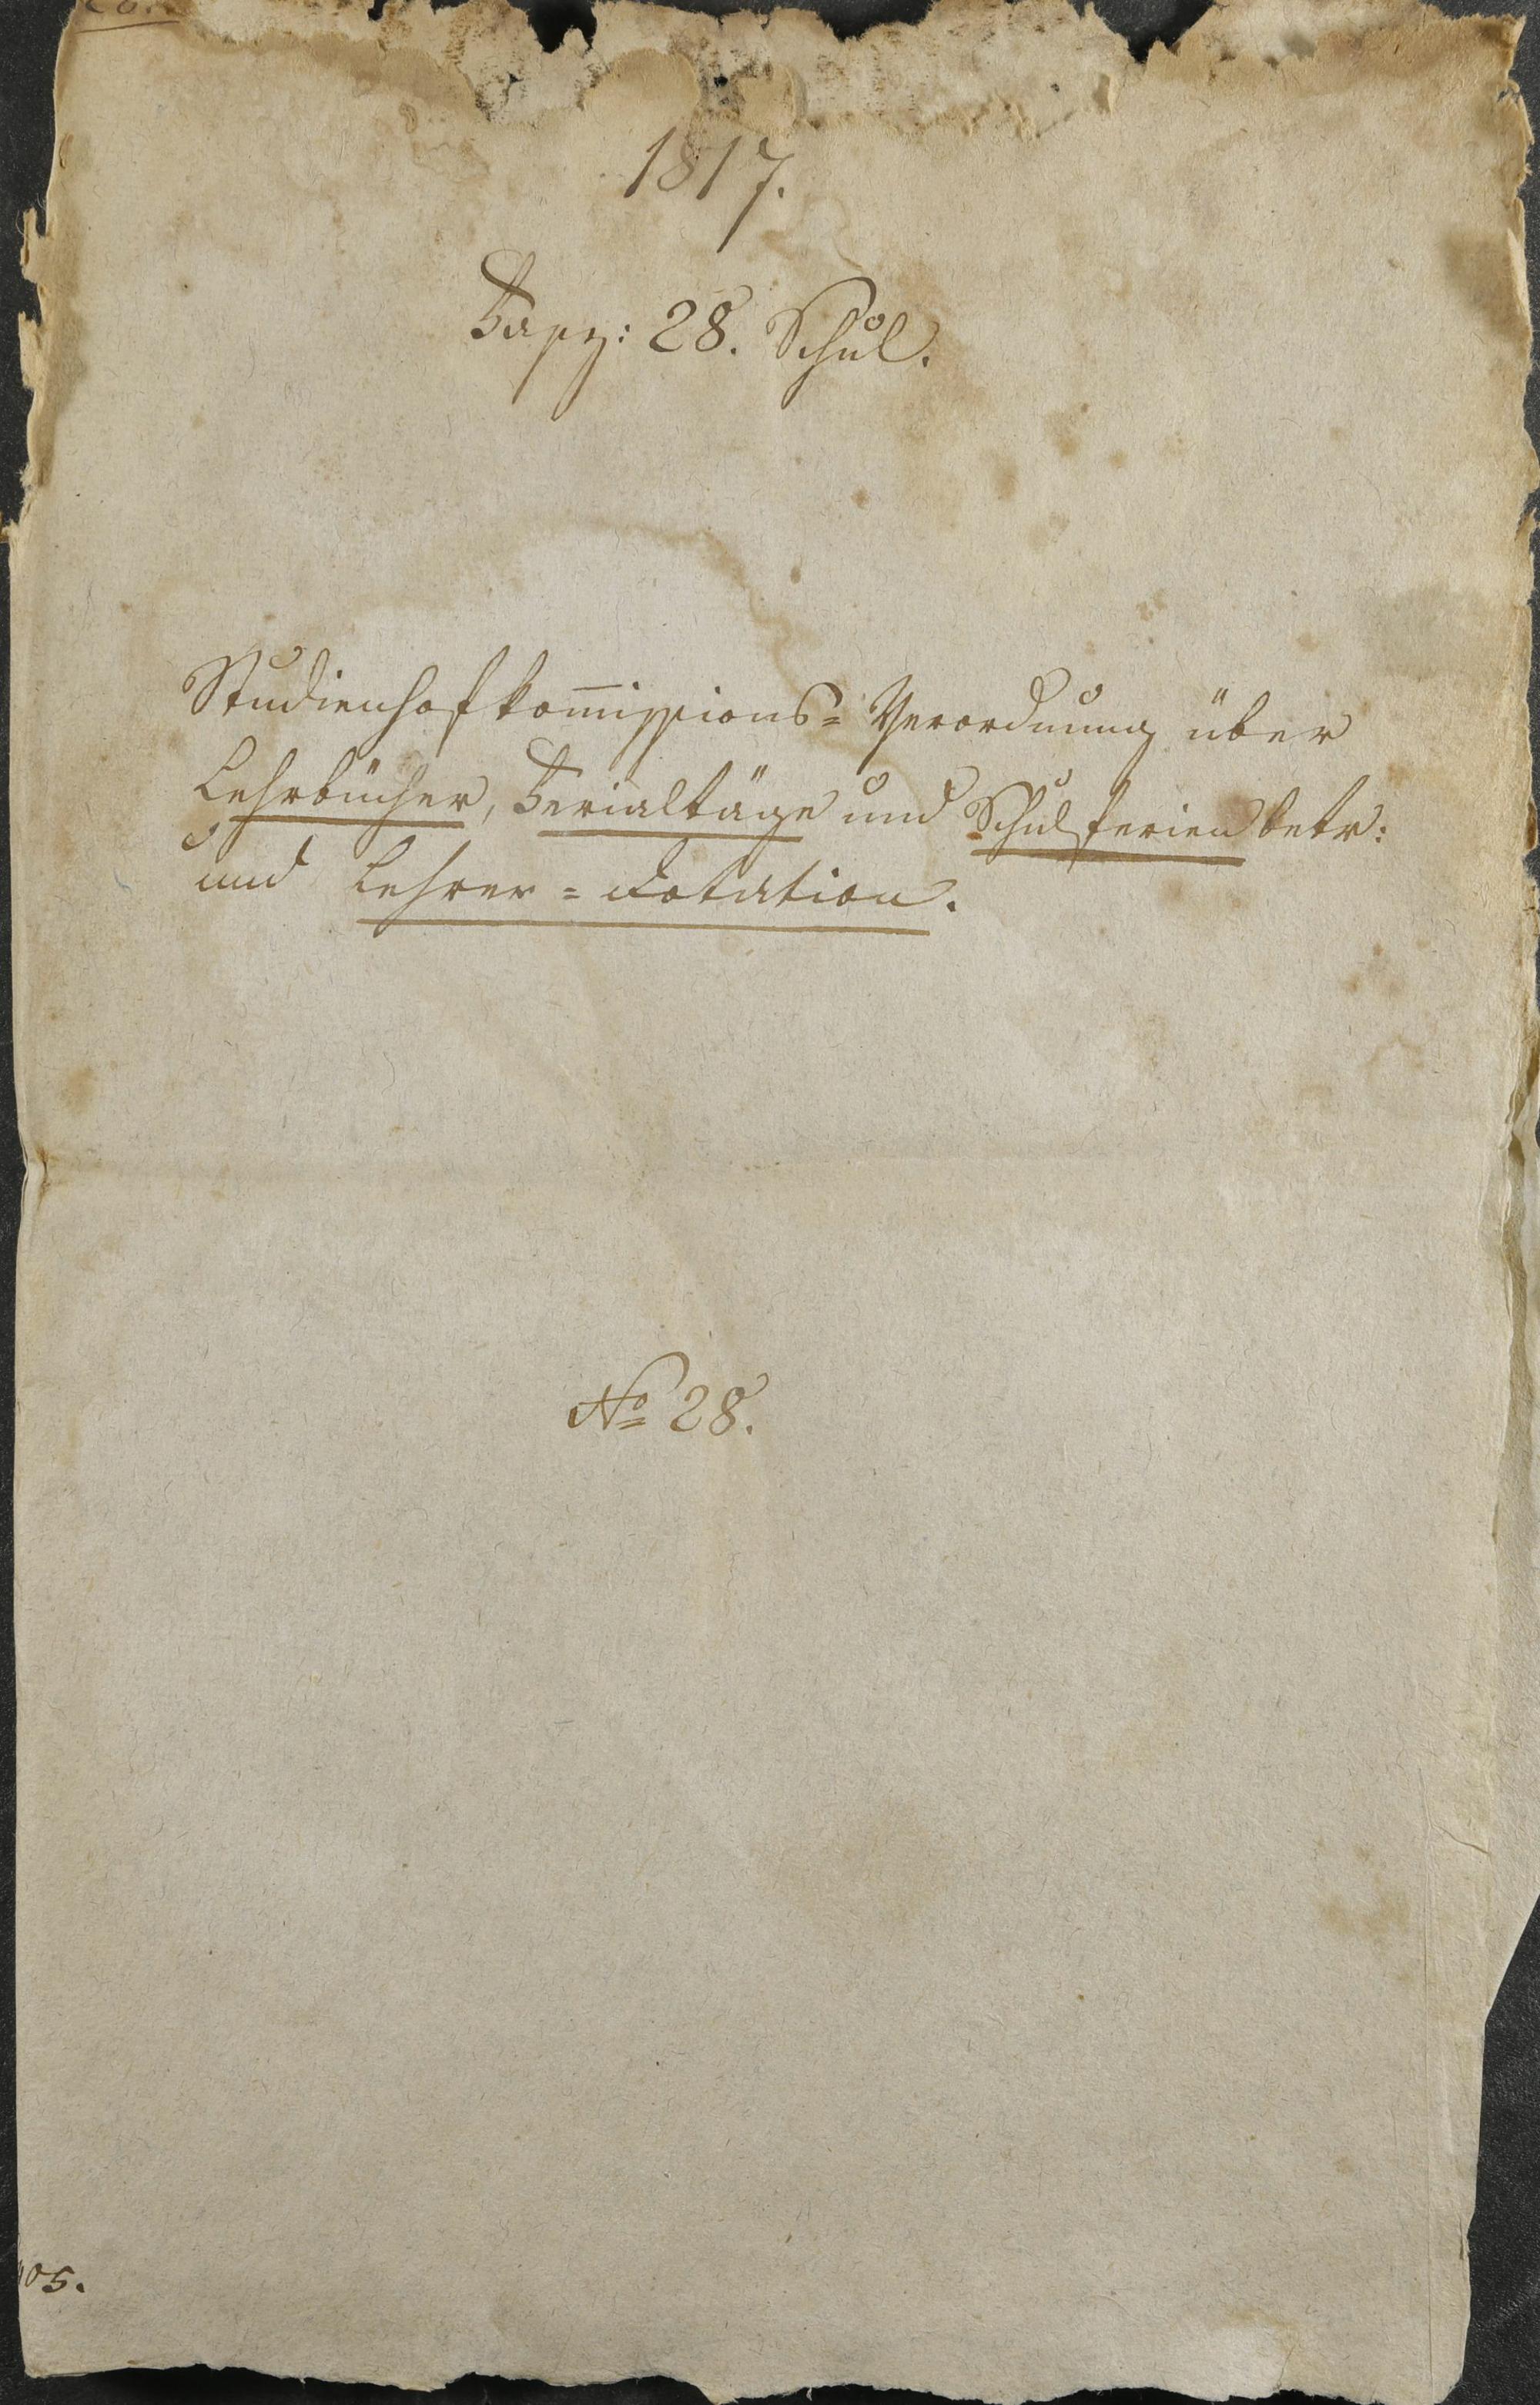 1817.
Fasz: 28. Schul.
Studienhofkom̄issions= Verordnung über
Lehrbücher, Ferialtäge und Schulferien betr:
und Lehrer = Dotation.
No 28.
105.